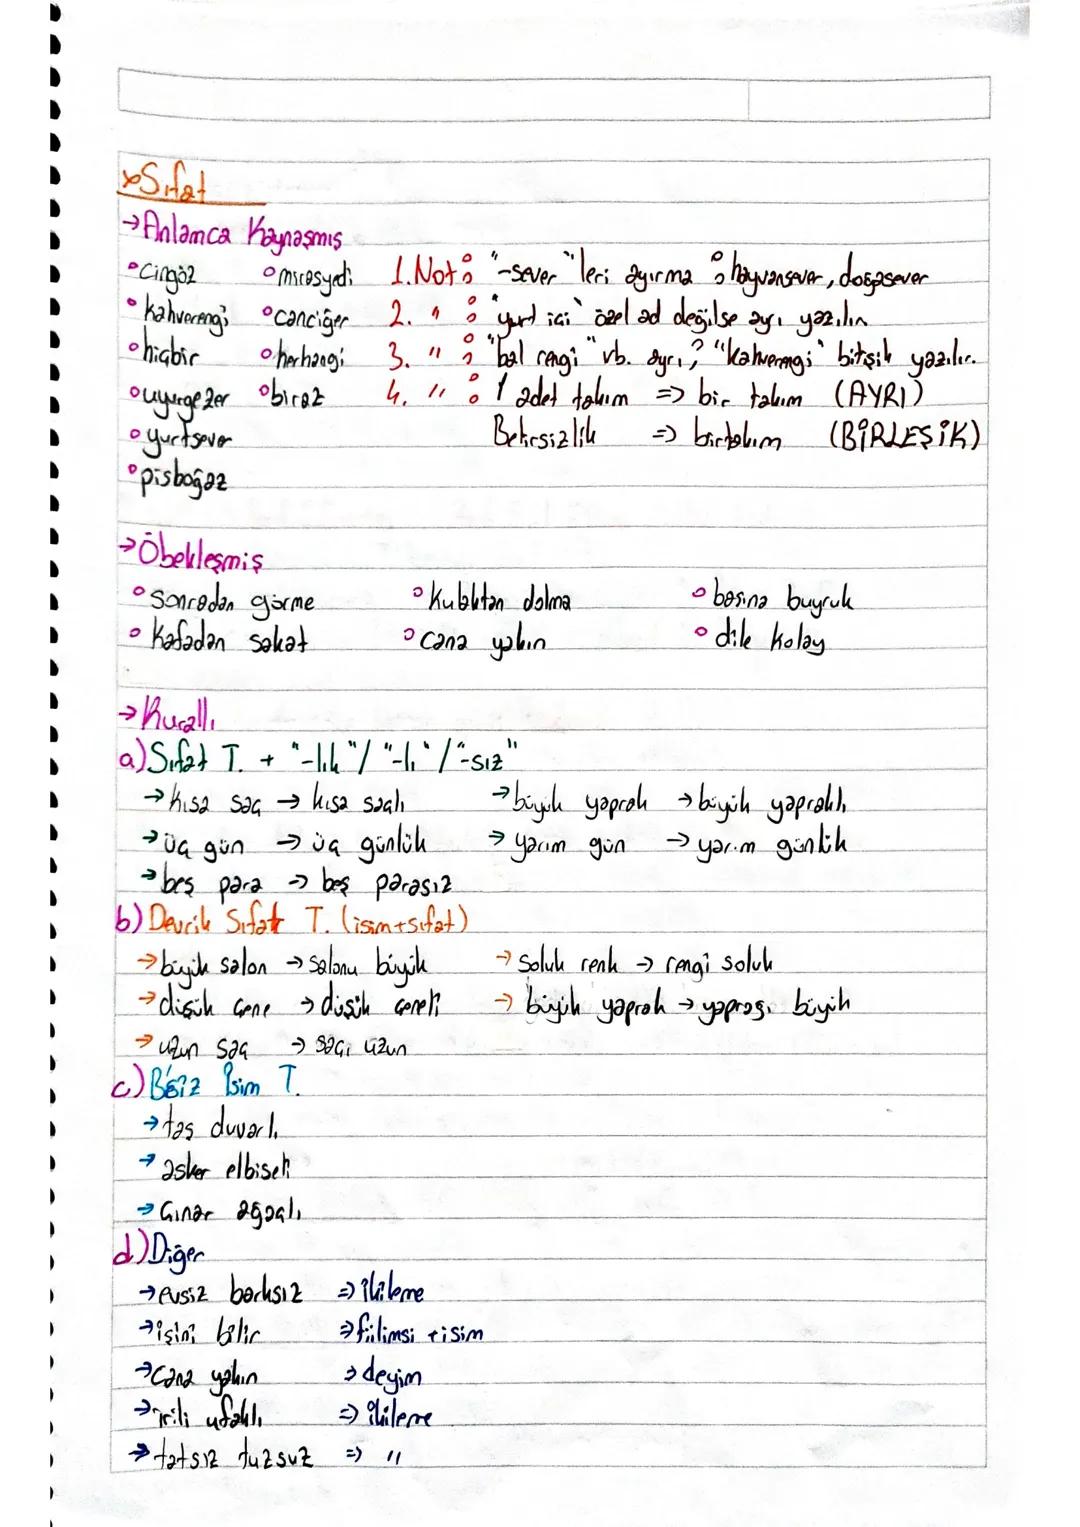 Sıfat
→Anlamca Kaynaşmış
°cingöz °mirasyedi 1.Not: "-sever"leri ayırma : hayvansever, doğasever
°kahverengi °canciğer 2. " : "yurt içi" özel ad değilse ayrı yazılır.
°hiçbir °herhangi 3. " : "bal rengi" vb. ayrı; "kahverengi" bitişik yazılır.
°uyurgezer °biraz 4. " : 1 adet takım => bir takım (AYRI)
°yurtsever Belirsizlik => birtakım (BİRLEŞİK)
°pisboğaz
→Öbekleşmiş
°sonradan görme °kulaktan dolma °başına buyruk
°kafadan sakat °cana yakın °dile kolay
→Kurallı
a) Sıfat T. + "-lık"/"-lı"/"-sız"
→kısa saç → kısa saçlı →büyük yaprak →büyük yapraklı
→üç gün → üç günlük → yarım gün → yarım günlük
→beş para → beş parasız
b) Devrik Sıfat T. (isim+sıfat)
→büyük salon → salonu büyük → soluk renk → rengi soluk
→düşük çene → düşük çeneli → büyük yaprak → yaprağı büyük
→uzun saç → saçı uzun
c) B'siz İsim T.
→taş duvarlı
→asker elbiseli
→çınar ağaçlı
d) Diğer
→evsiz barksız => ikileme
→işini bilir => fiilimsi + isim
→cana yakın → deyim
→irili ufaklı => ikileme
→tatsız tuzsuz => "